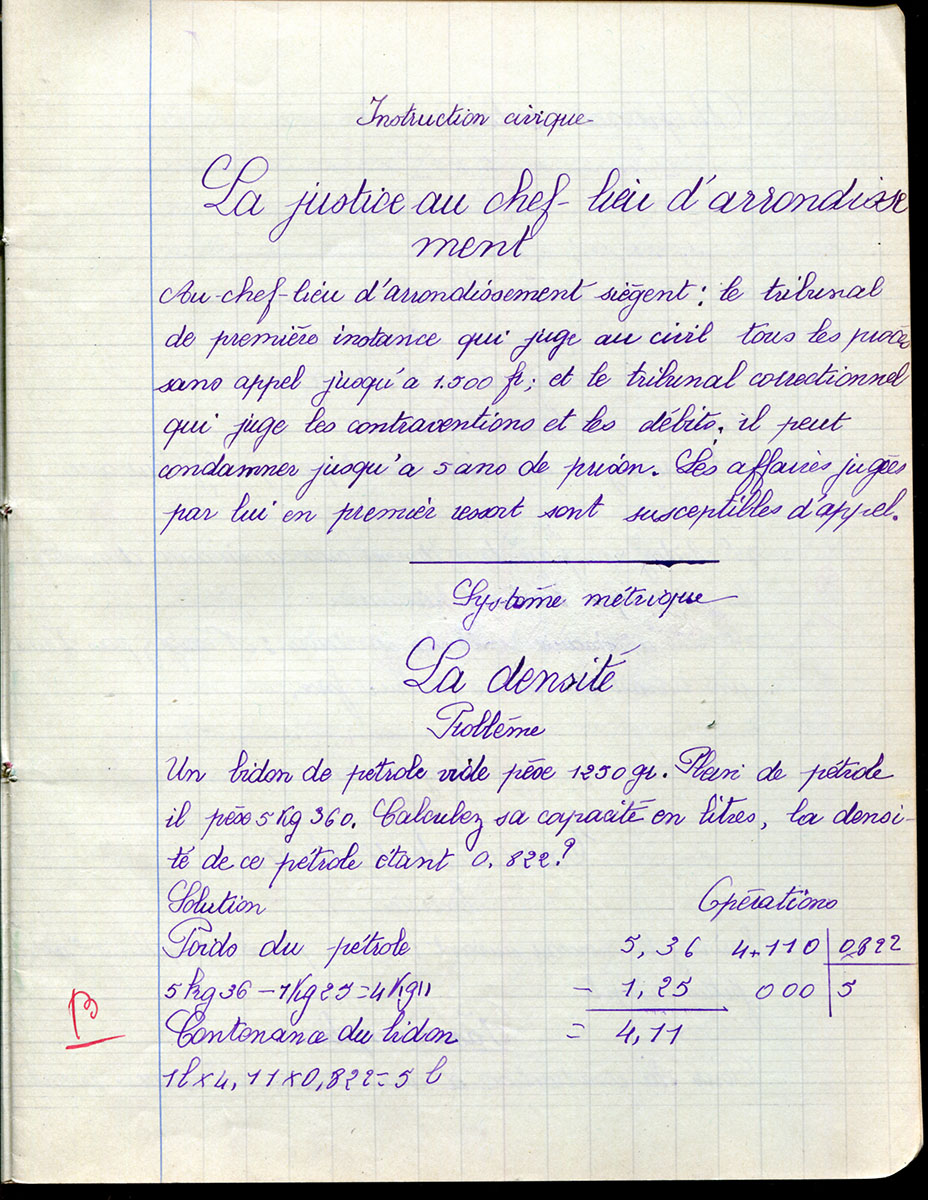 Instruction civique
La justice au chef-lieu d'arrondisse
ment
Au chef-lieu d'arrondissement siègent : le tribunal
de première instance qui juge au civil tous les procès
sans appel jusqu'a 1.500 fr; et le tribunal correctionnel
qui juge les contraventions et les débits, il peut
condamner jusqu'a 5 ans de prison. Les affaires jugées
par lui en premier ressort sont susceptibles d'appel.
Système métrique
La densité
Problème
Un bidon de pétrole vide pèse 1250 gr. Plein de pétrole
il pèse 5 Kg 360. Calculez sa capacité en litres, la densi-
té de ce pétrole étant 0,822?
Solution Opérations
Poids du pétrole 5,36 4,110 0,822
5 kg 36 - 1 Kg 25 = 4 Kg 11 - 1,25 000 5
B
Contenance du bidon = 4,11
1 l x 4,11 x 0,822 = 5 l